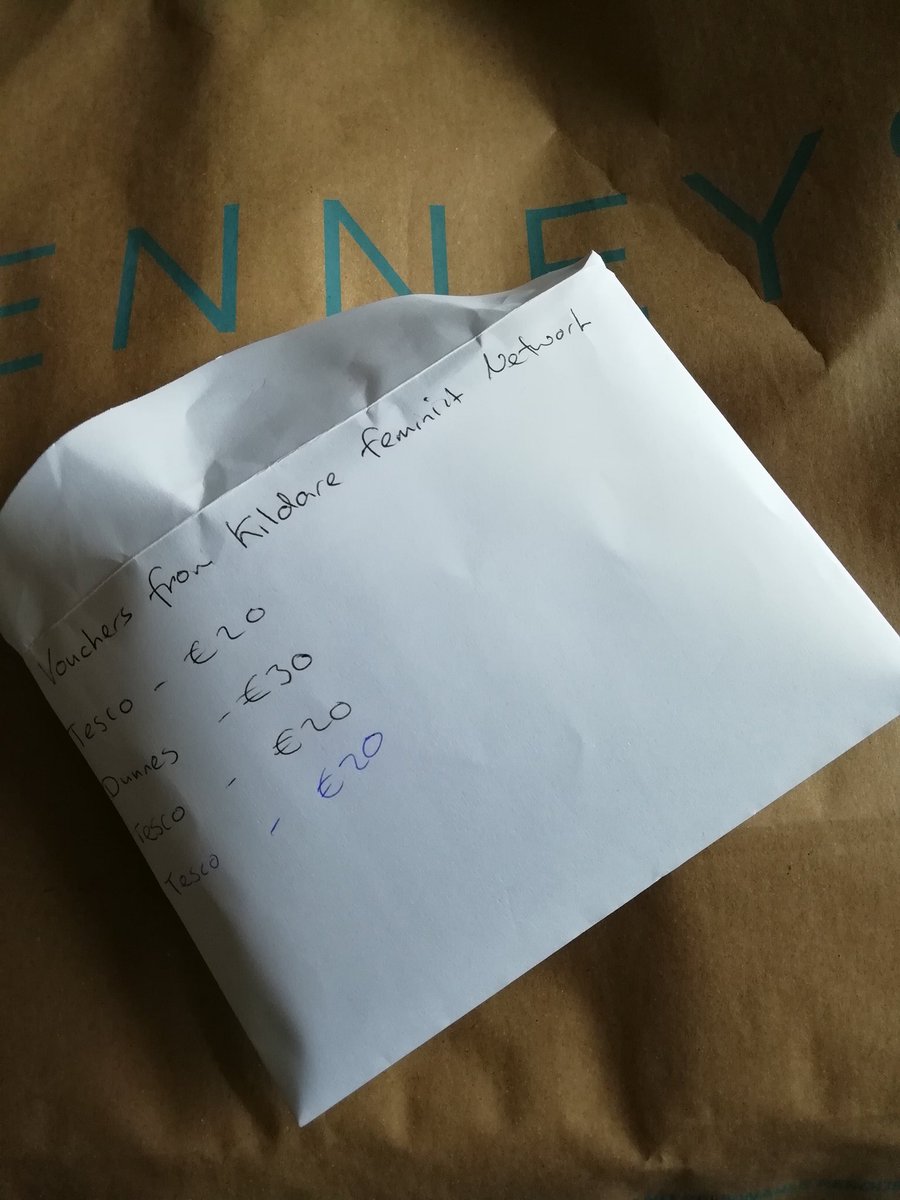 ENNEYS
Vouchers from Kildare Feminist Network
Tesco - €20
Dunnes - €30
Tesco - €20
Tesco - €20